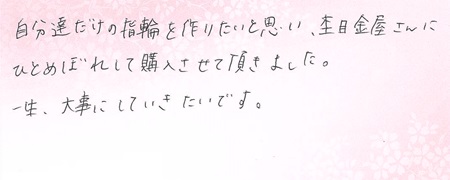 自分達だけの指輪を作りたいと思い、杢目金屋さんに
ひとめぼれして購入させて頂きました。
一生、大事にしていきたいです。